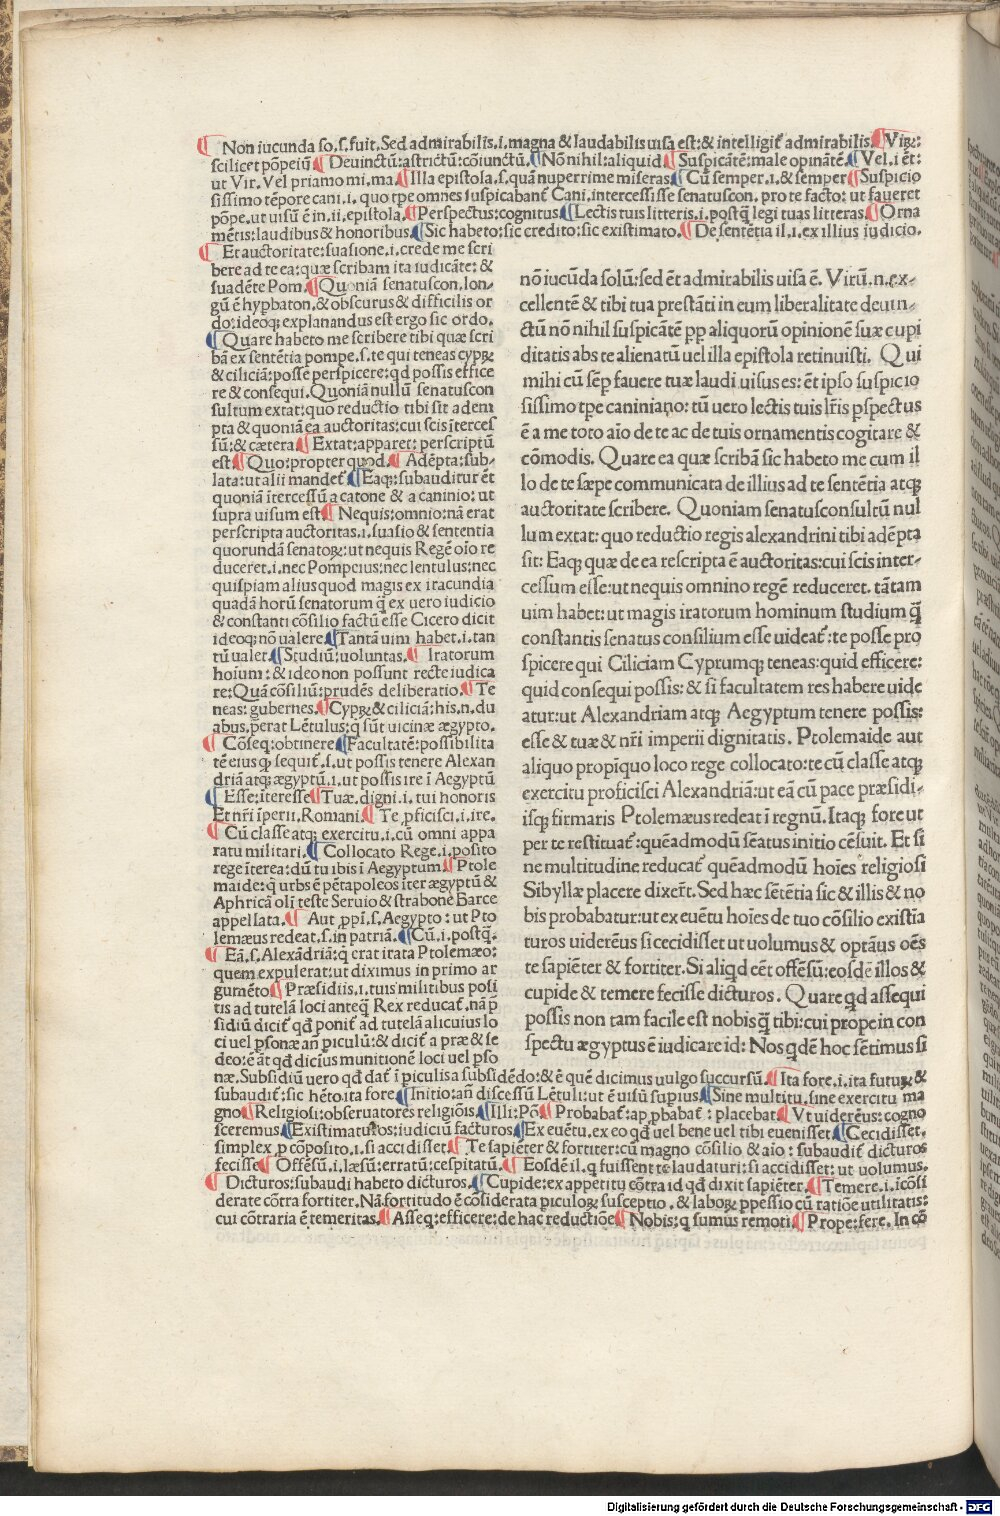 ¶ Non iucunda so. s. fuit. Sed admirabilis. i. magna & laudabilis uisa est: & intelligit᷑ admirabilis. ¶ Viꝝ:
scilicet põpeiũ ¶ Deuinctũ: astrictũ: cõiunctũ. ¶ Nõ nihil: aliquid ¶ Suspicãtẽ: male opinãtẽ ¶ Vel. i ẽt:
ut Vir. Vel priamo mi. ma. ¶ Illa epistola. s. quã nuperrime miseras ¶ Cũ semper. i. & semper ¶ Suspicio
sissimo tẽpore cani. i. quo tꝑe omnes suspicabant᷑ Cani. intercessisse senatuscon. pro te facto: ut faueret
põpe. ut uisũ ẽ in. ii. epistola. ¶ Perspectus: cognitus ¶ Lectis tuis litteris. i. postq̃ legi tuas litteras ¶ Orna
mẽtis: laudibus & honoribus ¶ Sic habeto: sic credito: sic existimato. ¶ De sentẽtia il. i. ex illius iudicio.
¶ Et auctoritate: suasione. i. crede me scri
bere ad te ea: quæ scribam ita iudicãte: &
suadẽte Pom. ¶ Quoniã senatuscon. lon-
gũ ẽ hyꝑbaton. & obscurus & difficilis or
do: ideoq; explanandus est ergo sic ordo.
¶ Quare habeto me scribere tibi quæ scri
bã ex sentẽtia pompe. s. te qui teneas cypꝝ
& ciliciã: posse perspicere: qd possis effice
re & consequi. Quoniã nullũ senatuscon
sultum extat: quo reductio tibi sit adem
pta & quoniã ea auctoritas: cui scis ĩterces
sũ: & cætera ¶ Extat: apparet: perscriptũ
est ¶ Quo: propter quod. ¶ Adẽpta: sub-
lata: ut alii mandet᷑ ¶ Eaq; : subauditur ẽt
quoniã ĩtercessũ a catone & a caninio: ut
supra uisum est ¶ Nequis: omnio: nã erat
perscripta auctoritas. i. suasio & sententia
quorundã senatoꝝ: ut nequis Regẽ oio re
duceret. i. nec Pompeius: nec lentulus: nec
quispiam alius quod magis ex iracundia
quadã horũ senatorum q̃ ex uero iudicio
& constanti cõsilio factũ esse Cicero dicit
ideoq; nõ ualere ¶ Tantã uim habet. i. tan
tũ ualet ¶ Studiũ: uoluntas. ¶ Iratorum
hoium: & ideo non possunt recte iudica
re: Quã cõsiliũ: prudẽs deliberatio. ¶ Te
neas: gubernes. ¶ Cypꝝ & ciliciã: his. n. du
abus. ꝑerat Lẽtulus: q̃ sũt uicinæ ægypto.
¶ Cõseq: obtinere ¶ Facultatẽ: possibilita
tẽ eius q̃ sequit᷑. s. ut possis tenere Alexan
driã atq; ægyptũ. i. ut possis ire ĩ Aegyptũ
¶ Esse: ĩteresse ¶ Tuæ. digni. i. tui honoris
Et nr̃i ĩperii. Romani. ¶ Te ꝓficisci. i. ire.
¶ Cũ classe atq; exercitu. i. cũ omni appa
ratu militari. ¶ Collocato Rege. i. posito
rege ĩterea: dũ tu ibis ĩ Aegyptum ¶ Ptole
maide: q̃ urbs ẽ pẽtapoleos ĩter ægyptũ &
Aphricã olĩ teste Seruio & strabone Barce
appellata. ¶ Aut ꝓpĩ. s. Aegypto: ut Pto
lemæus redeat. s. in patriã. ¶ Cũ. i. postq̃.
¶ Eã. s. Alexãdriã: q̃ erat irata Ptolemæo:
quem expulerat: ut diximus in primo ar
gumẽto ¶ Præsidiis. i. tuis militibus posi
tis ad tutelã loci anteq̃ Rex reducat᷑. nã p̃
sidiũ dicit᷑ qđ ponit᷑ ad tutelã alicuius lo
ci uel ꝑsonæ añ ꝑiculũ: & dicit᷑ a præ & se
deo: ẽ ãt qđ dicius munitionẽ loci uel ꝑso
næ. Subsidiũ uero qđ dat᷑ ĩ ꝑiculis a subsidẽdo: & ẽ quẽ dicimus uulgo succursũ. ¶ Ita fore. i. ita futuꝝ &
subaudit᷑: sic hẽto. ita fore ¶ Initio: añ discessũ Lẽtuli: ut ẽ uisũ supius ¶ Sine multitu. sine exercitu ma
gno ¶ Religiosi: obseruatores religiõis ¶ Illi: Põ ¶ Probabat᷑: apꝓbabat᷑: placebat ¶ Vt uiderẽus: cogno
sceremus ¶ Existimaturos: iudiciũ facturos ¶ Ex euẽtu. ex eo qđ uel bene uel tibi euenisset ¶ Cecidisset.
simplex ꝓ cõposito. i. si accidisset ¶ Te sapiẽter & fortiter: cũ magno cõsilio & aio: subaudit᷑ dicturos
fecisse ¶ Offẽsũ. i. læsũ: erratũ: cespitatũ. ¶ Eosdẽ il. q fuissent te laudaturi: si accidisset: ut uolumus.
¶ Dicturos: subaudi habeto dicturos. ¶ Cupide: ex appetitu cõtra id qđ dixit sapiẽter. ¶ Temere. i. icõsi
derate cõtra fortiter. Nã fortitudo ẽ cõsiderata ꝑiculoꝝ susceptio. & laboꝝ ꝑpessio cũ ratiõe utilitatis:
cui cõtraria ẽ temeritas. ¶ Asseq: efficere: de hac reductiõe ¶ Nobis: q sumus remoti ¶ Prope: fere. In cõ
nõ iucũda solũ: sed ẽt admirabilis uisa ẽ. Virũ. n. ex-
cellentẽ & tibi tua prestãti in eum liberalitate deuin-
ctũ nõ nihil suspicãtẽ ꝓp aliquorũ opinionẽ suæ cupi
ditatis abs te alienatũ uel illa epistola retinuisti. Qui
mihi cũ sẽp fauere tuæ laudi uisus es: ẽt ipso suspicio
sissimo tꝑe caniniano: tũ uero lectis tuis lr̃is ꝑspectus
ẽ a me toto aĩo de te ac de tuis ornamentis cogitare &
cõmodis. Quare ea quæ scribã sic habeto me cum il
lo de te sæpe communicata de illius ad te sentẽtia atq;
auctoritate scribere. Quoniam senatusconsultũ nul
lum extat: quo reductio regis alexandrini tibi adẽpta
sit: Eaq; quæ de ea rescripta ẽ auctoritas: cui scis inter-
cessum esse: ut nequis omnino regẽ reduceret. tãtam
uim habet: ut magis iratorum hominum studium q̃
constantis senatus consilium esse uideat᷑: te posse pro
spicere qui Ciliciam Cyprumq; teneas: quid efficere:
quid consequi possis: & si facultatem res habere uide
atur: ut Alexandriam atq; Aegyptum tenere possis:
esse & tuæ & nr̃i imperii dignitatis. Ptolemaide aut
aliquo propĩquo loco rege collocato: te cũ classe atq;
exercitu proficisci Alexandriã: ut eã cũ pace præsidi-
isq; firmaris Ptolemæus redeat ĩ regnũ. Itaq; fore ut
per te restituat᷑: quẽadmodũ sẽatus initio cẽsuit. Et si
ne multitudine reducat᷑ quẽadmodũ hoĩes religiosi
Sibyllæ placere dixer̃t. Sed hæc sẽtẽtia sic & illis & no
bis probabatur: ut ex euẽtu hoĩes de tuo cõsilio existĩa
turos uiderẽus si cecidisset ut uolumus & optãus oẽs
te sapiẽter & fortiter. Si aliqd eẽt offẽsũ: eosdẽ illos &
cupide & temere fecisse dicturos. Quare qd assequi
possis non tam facile est nobis q̃ tibi: cui prope in con
spectu ægyptus ẽ iudicare id: Nos qdẽ hoc sẽtimus si
Digitalisierung gefördert durch die Deutsche Forschungsgemeinschaft - DFG